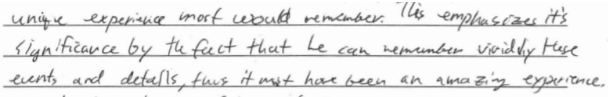 unique experience most would remember. This emphasizes it's
significance by the fact that he can remember vividly these
events and details, thus it must have been an amazing experience.